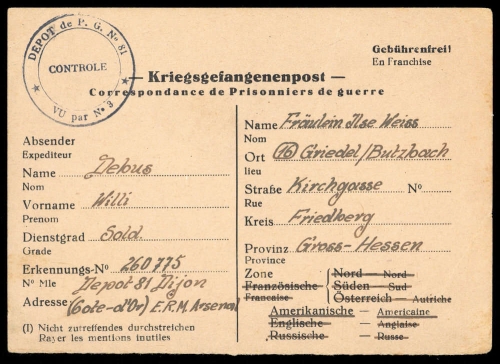 DEPOT de P. G. Nº 81
CONTROLE
VU par Nº 3
Gebührenfrei!
En Franchise
— Kriegsgefangenenpost —
Correspondance de Prisonniers de guerre
Absender
Expéditeur
Name Debus
Nom
Vorname Willi
Prenom
Dienstgrad Sold.
Grade
Erkennungs-Nº 260775
Nº Mle Depot 81 Dijon
Adresse (Cote-d'Or) E.R.M. Arsenal
(I) Nicht zutreffendes durchstreichen
Rayer les mentions inutiles
Name Fräulein Ilse Weiss
Nom
Ort (16) Griedel/Butzbach
lieu
Straße Kirchgasse Nº
Rue
Kreis Friedberg
Provinz Gross-Hessen
Province
Zone Nord — Nord
Französische Süden — Sud
Francaise Österreich — Autriche
Amerikanische — Americaine
Englische — Anglaise
Russische — Russe